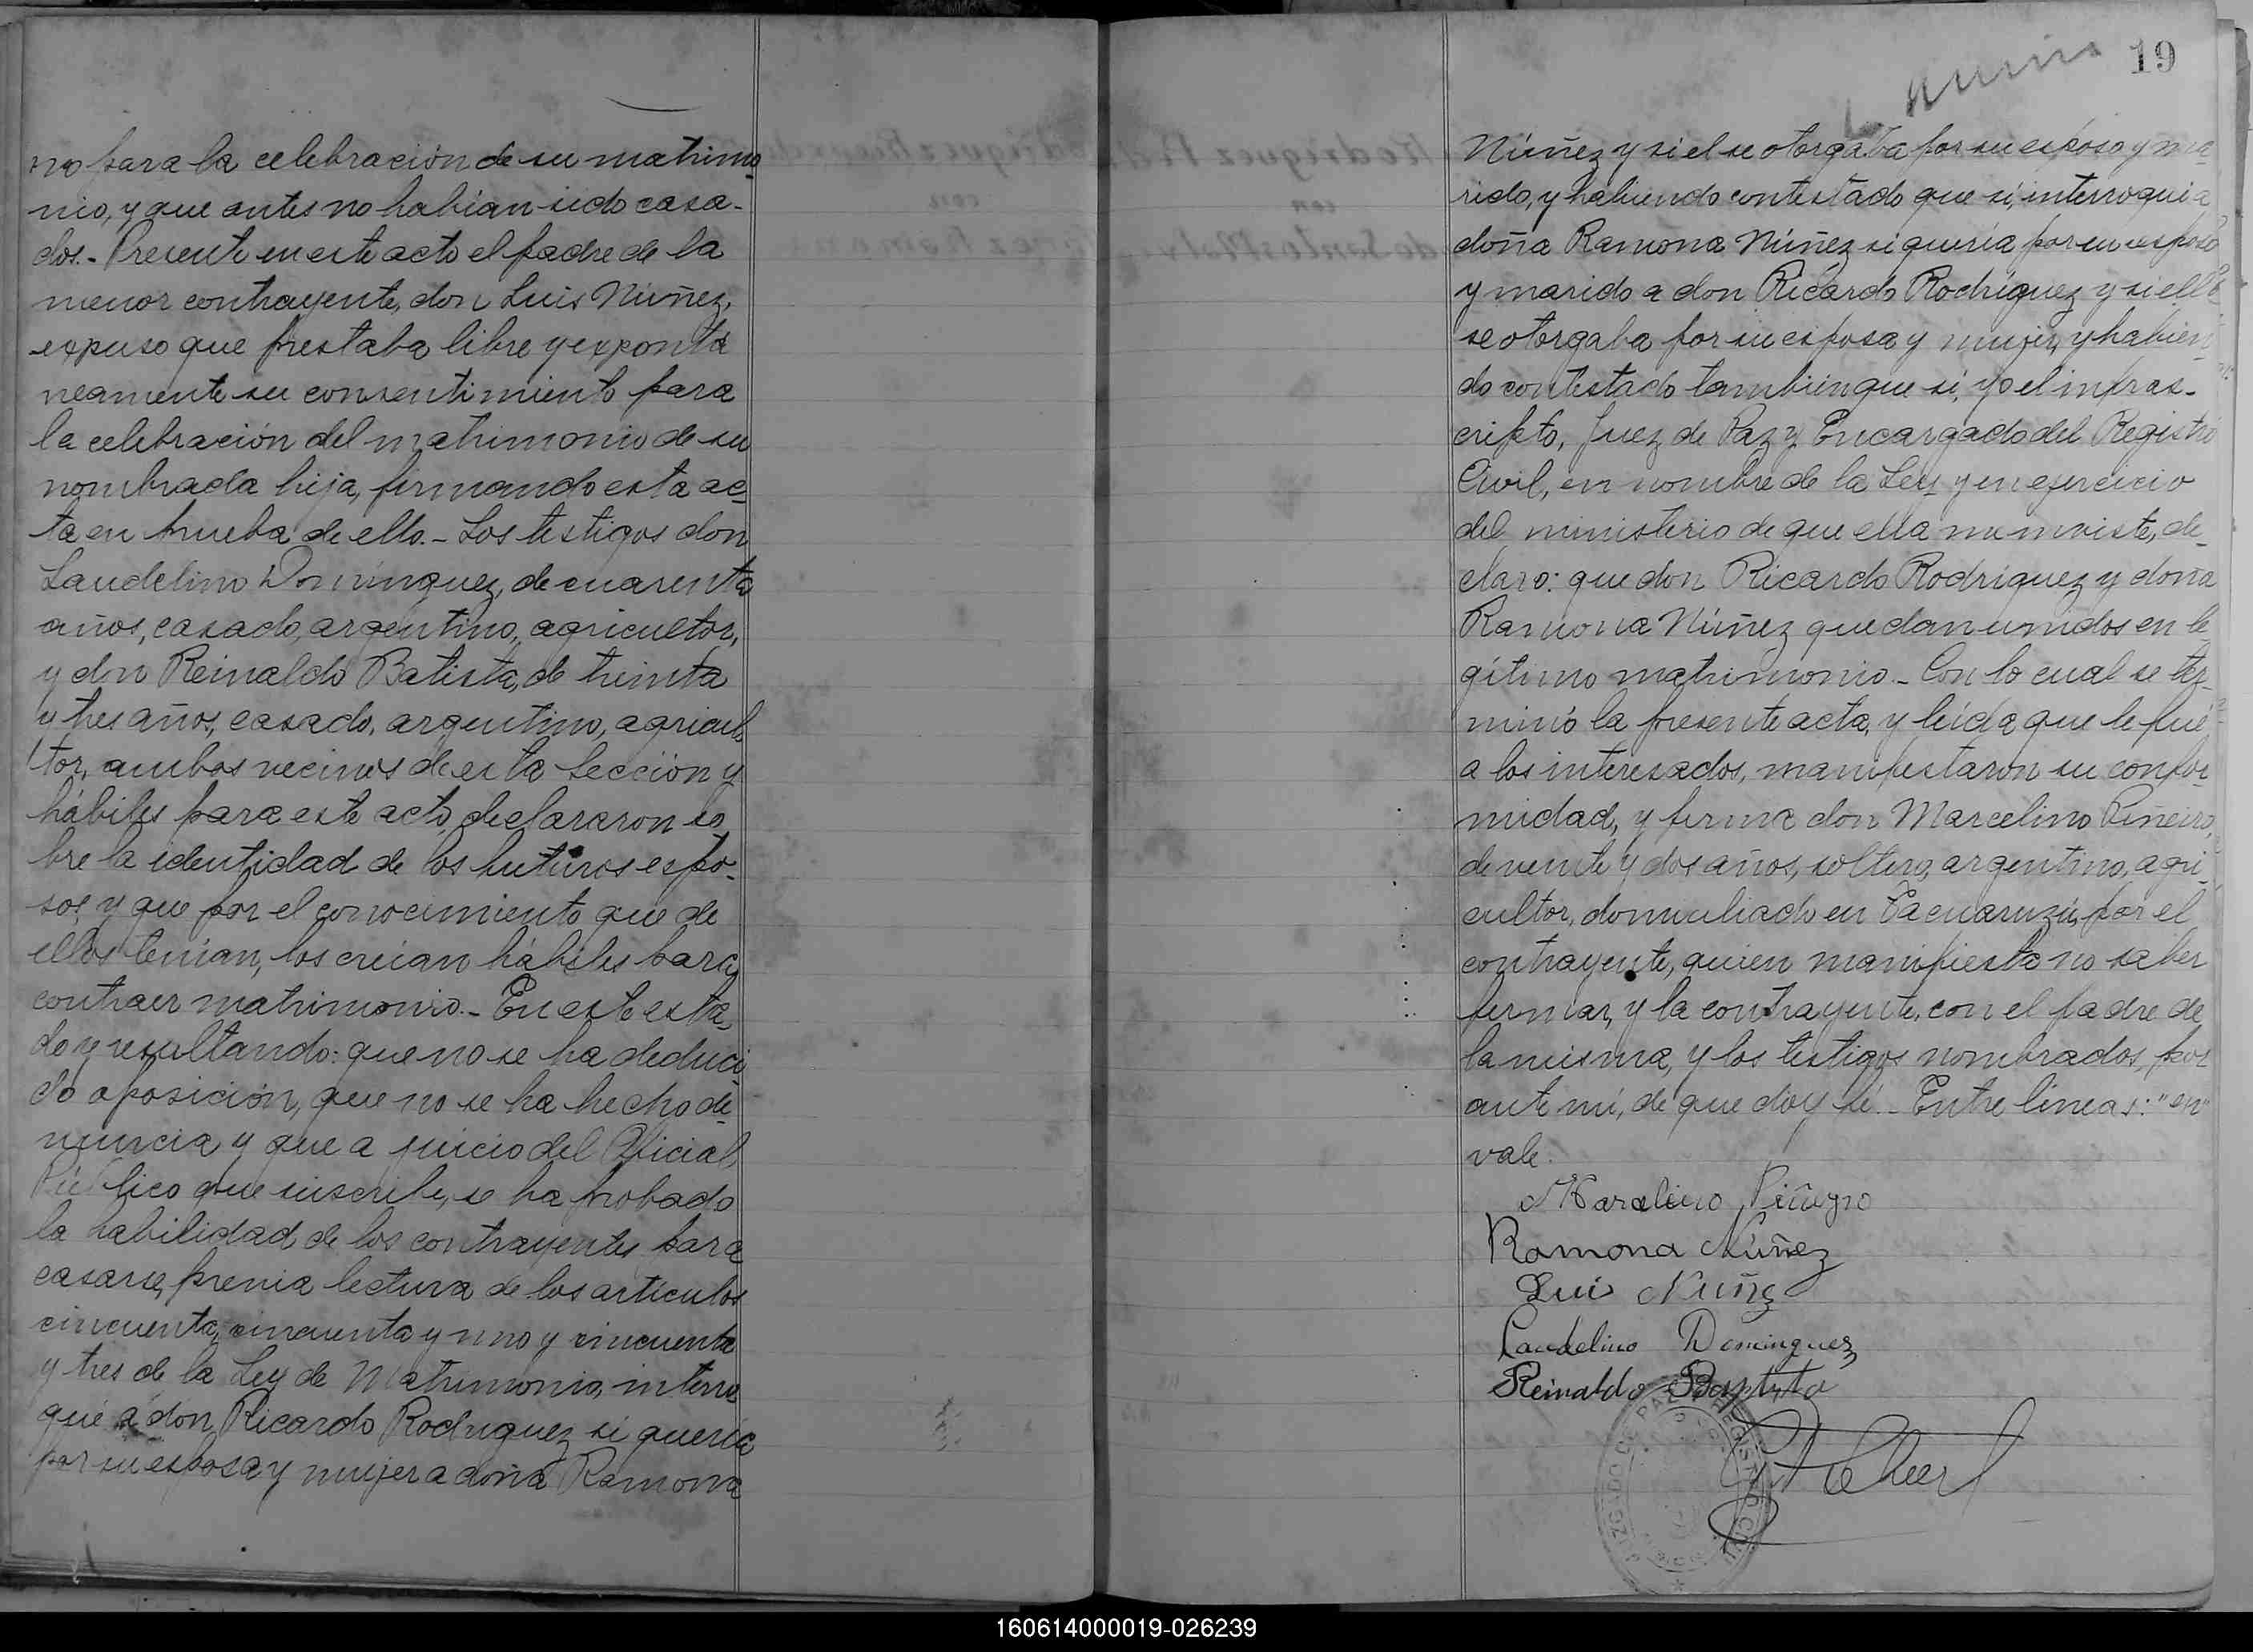 no para la celebración de su matrimo-
nio, y que antes no habían sido casa-
dos.- Presente en este acto el padre de la
menor contrayente, don Luis Núñez,
expuso que prestaba libre y exponta
neamente su consentimiento para
la celebración del matrimonio de su
nombrada hija, firmando esta ac-
ta en prueba de ello.- Los testigos don
Laudelino Domínguez, de cuarenta
años, casado, argentino, agricultor,
y don Reinaldo Batista, de treinta
y tres años, casado, argentino, agricul-
tor, ambos vecinos de esta Sección y
hábiles para este acto, declararon so-
bre la identidad de los futuros espo-
sos, y que por el conocimiento que de
ellos tenían, los creían hábiles para
contraer matrimonio.- En este esta-
do y resultando: que no se ha deduci-
do oposición, que no se ha hecho de-
nuncia y que a juicio del Oficial
Público que suscribe, se ha probado
la habilidad de los contrayentes para
casarse, previa lectura de los artículos
cincuenta, cincuenta y uno y cincuenta
y tres de la Ley de Matrimonio, interro-
gué a don Ricardo Rodríguez si quería
por su esposa y mujer a doña Ramona
19
Núñez y si el se otorgaba por su esposo y ma-
rido, y habiendo contestado que sí, interrogué a
doña Ramona Núñez si quería por su esposo
y marido a don Ricardo Rodríguez y si ella
se otorgaba por su esposa y mujer, y habien-
do contestado también que sí, yo el infras-
cripto, Juez de Paz y Encargado del Registro
Civil, en nombre de la Ley y en ejercicio
del ministerio de que ella me inviste, de-
claro: que don Ricardo Rodríguez y doña
Ramona Núñez quedan unidos en le-
gítimo matrimonio.- Con lo cual se ter-
minó la presente acta, y leída que le fué
a los interesados, manifestaron su confor-
midad, y firma don Marcelino Piñeiro,
de veinte y dos años, soltero, argentino, agri-
cultor, domiciliado en Tacuaruzú, por el
contrayente, quien manifiesta no saber
firmar, y la contrayente, con el padre de
la misma, y los testigos nombrados, por
ante mí, de que doy fé.- Entre líneas: "en"
vale.
Marcelino Piñeyro
Ramona Núñez
Luis Nuñez
Laudelino Dominguez
Reinaldo Baptista
JUZGADO DE PAZ Y REGISTRO CIVIL
160614000019-026239